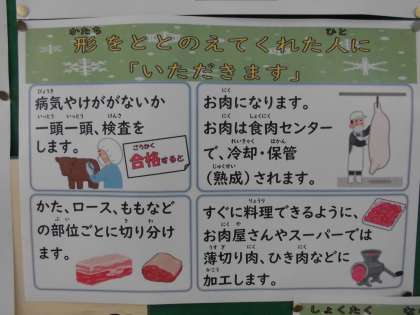 形をととのえてくれた人に
「いただきます」
病気やけががないか
一頭一頭、検査を
します。
合格すると
お肉になります。
お肉は食肉センター
で、冷却・保管
(熟成)されます。
かた、ロース、ももなど
の部位ごとに切り分け
ます。
すぐに料理できるように、
お肉屋さんやスーパーでは
薄切り肉、ひき肉などに
加工します。
しょくたく